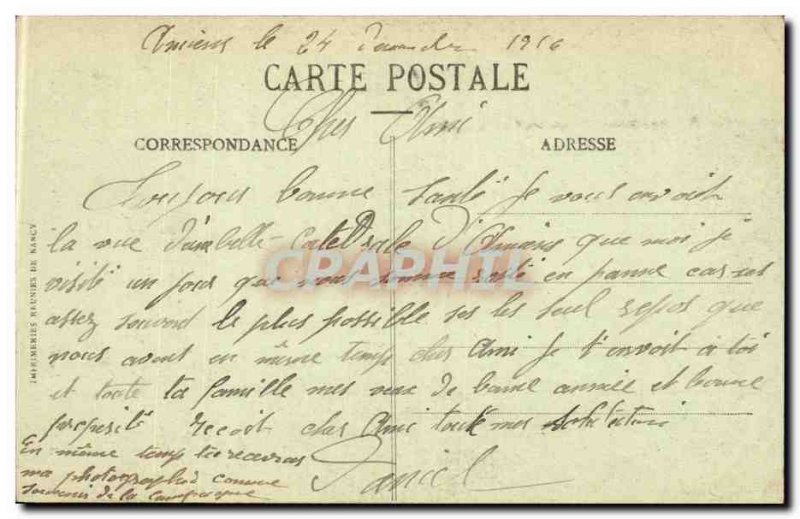 Amiens le 24 1916
CARTE POSTALE
Cher Ami
CORRESPONDANCE
ADRESSE
Toujours bonne santé Je vous envoit
la vue d'un belle Catedrale d'Amiens que moi je
visité un jour que nous somme resté en panne car
assez souvent le plus possible ses les seul repos que
nous avont en même temp cher Ami Je t'envoit a toi
et toute ta famille mes veux de bonne année et bonne
prosperité recoit cher Ami toute mes
Daniel
En même temp tu recevras
ma photographie comme
souvenir de la Campagne
IMPRIMERIES REUNIES DE NANCY
CPRAPHIL